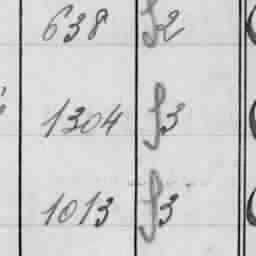 638 S2
1304 S3
1013 S3